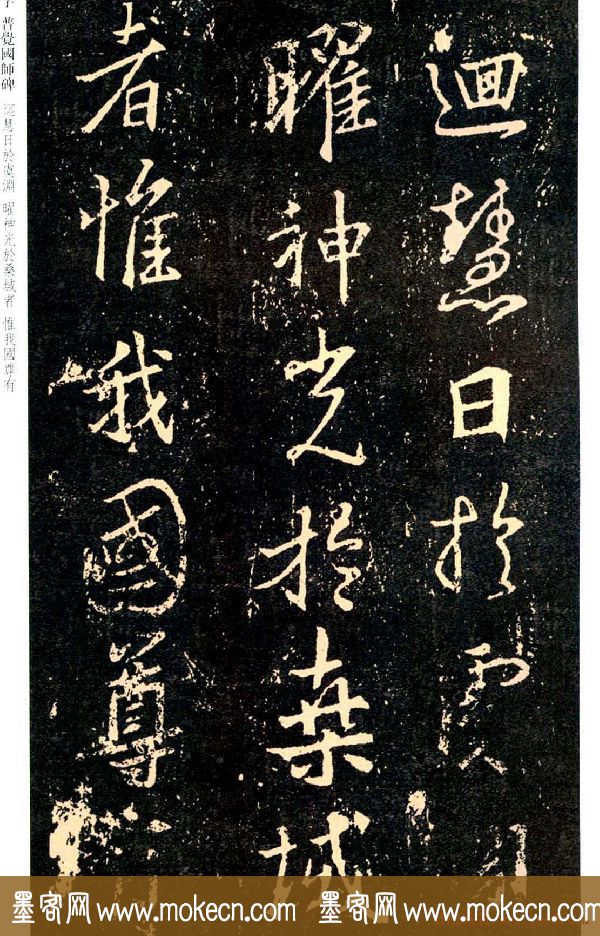 迴慧日於虞淵
曜神光於桒域
者惟我國尊
普覺國師碑 迴慧日於虞淵 曜神光於桑域者 惟我國尊有
墨客网 www.mokecn.com 墨客网 www.mokecn.com